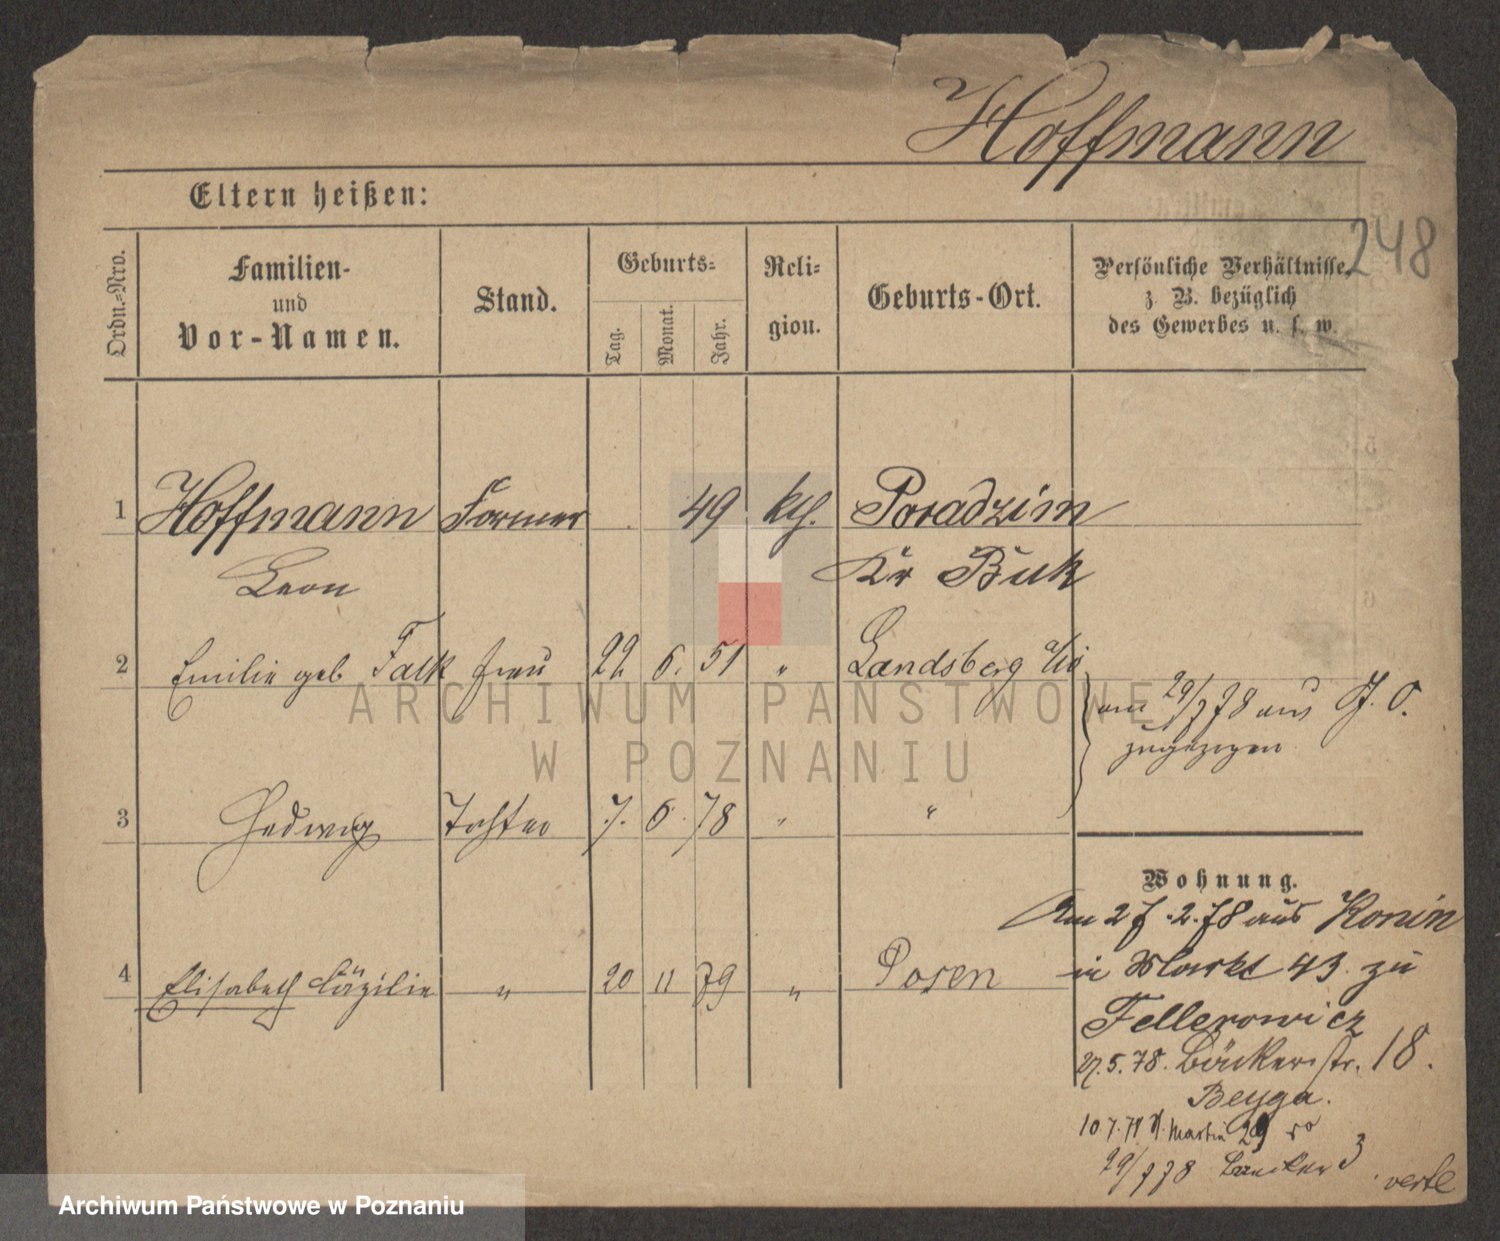 Hoffmann
Eltern heißen:
248
Ordn.-Nro.
Familien-
und
Vor-Namen.
Stand.
Geburts-
Tag.
Monat.
Jahr.
Reli-
gion.
Geburts-Ort.
Persönliche Verhältnisse,
z B. bezüglich
des Gewerbes u. s. w.
1 Hoffmann Former 49 kth. Poradzim
Leon Kr Buk
2 Emilie geb Falk Frau 22 6. 51 " Landsberg a/W
am 29/7 78 aus J. O.
zugezogen
3 Hedwig Tochter 7. 6. 78 " "
Wohnung.
Am 27.2.78 aus Konin
in Markt 43. zu
Fellerowicz
4 Elisabeth Cäzilie " 20 11 79 " Posen
27.5.78. Bäckerstr. 18.
Beyga.
10.7.78 St. Martin 29
29/7 78 Baecker 3
verte
ARCHIWUM PAŃSTWOWE
W POZNANIU
Archiwum Państwowe w Poznaniu